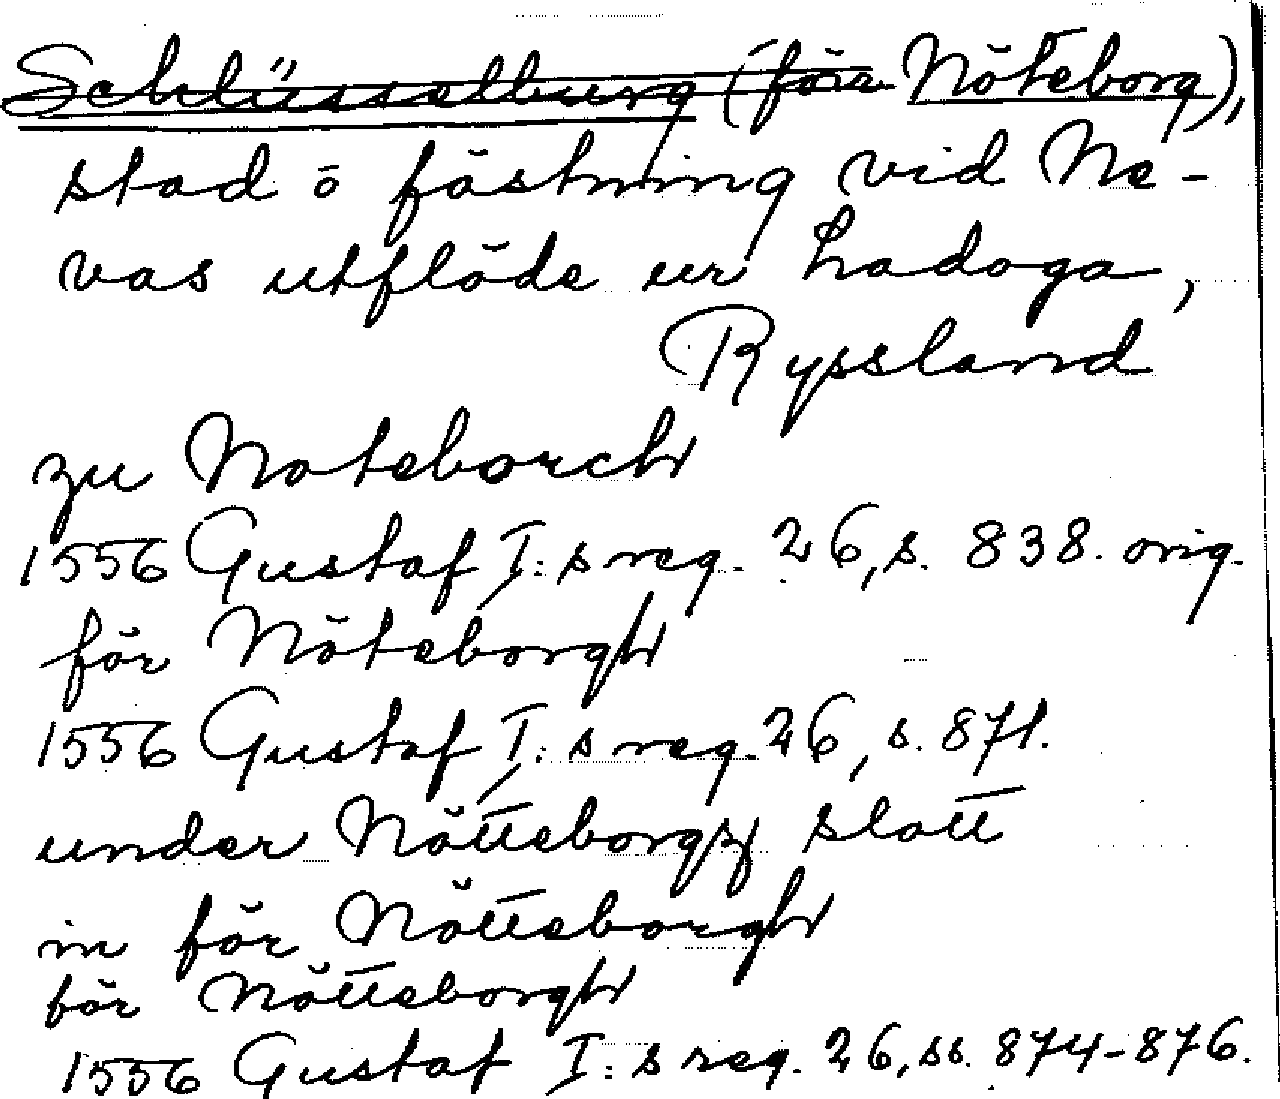 Schlüsselburg (förr Nöteborg),
stad o fästning vid Ne-
vas utflöde ur Ladoga,
Ryssland
zu Noteborch
1556 Gustaf I:s reg. 26, s. 838. orig.
för Nöteborgh
1556 Gustaf I:s reg. 26, s. 871.
under Nötteborgz slott
in för Nötteborgh
för Nötteborgh
1556 Gustaf I:s reg. 26, ss. 874-876.